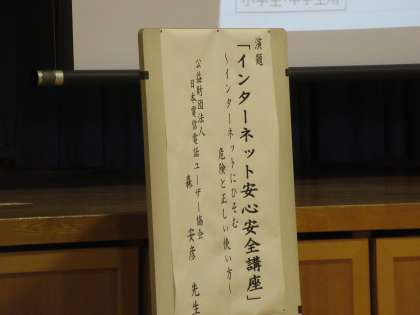 小学生・中学生用
演題
「インターネット安心安全講座」
～インターネットにひそむ
危険と正しい使い方～
公益財団法人
日本電信電話ユーザー協会
森 安彦 先生